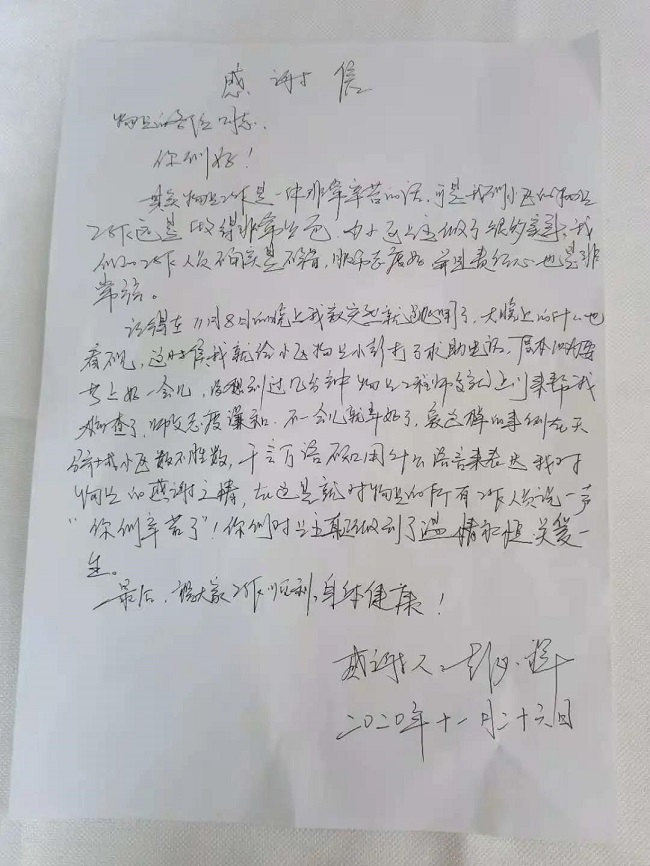 感谢信
物业的各位同志：
你们好！
其实物业工作是一件非常辛苦的活，可是我们小区的物业
工作还是做得非常出色，为小区业主做了很多实事，我
们的工作人员不但实是不错，服务态度好，并且责任心也是非
常强。
记得在11月8日的晚上我家突然就跳闸了，大晚上的什么也
看不见，这时候我就给小区物业小彭打了求助电话，原本以为要
等上好一会儿，没想到过几分钟物业工程师傅就上门来帮我
检查了，师傅态度谦和，不一会儿就弄好了，象这样的事例在天
我小区数不胜数，千言万语不知用什么语言来表达我对
物业的感谢之情，在这里就对物业的所有工作人员说一声
“你们辛苦了”！你们对业主真正做到了温情和恒关爱一
生。
最后，祝大家工作顺利，身体健康！
感谢人：
二0二0年十一月二十六日